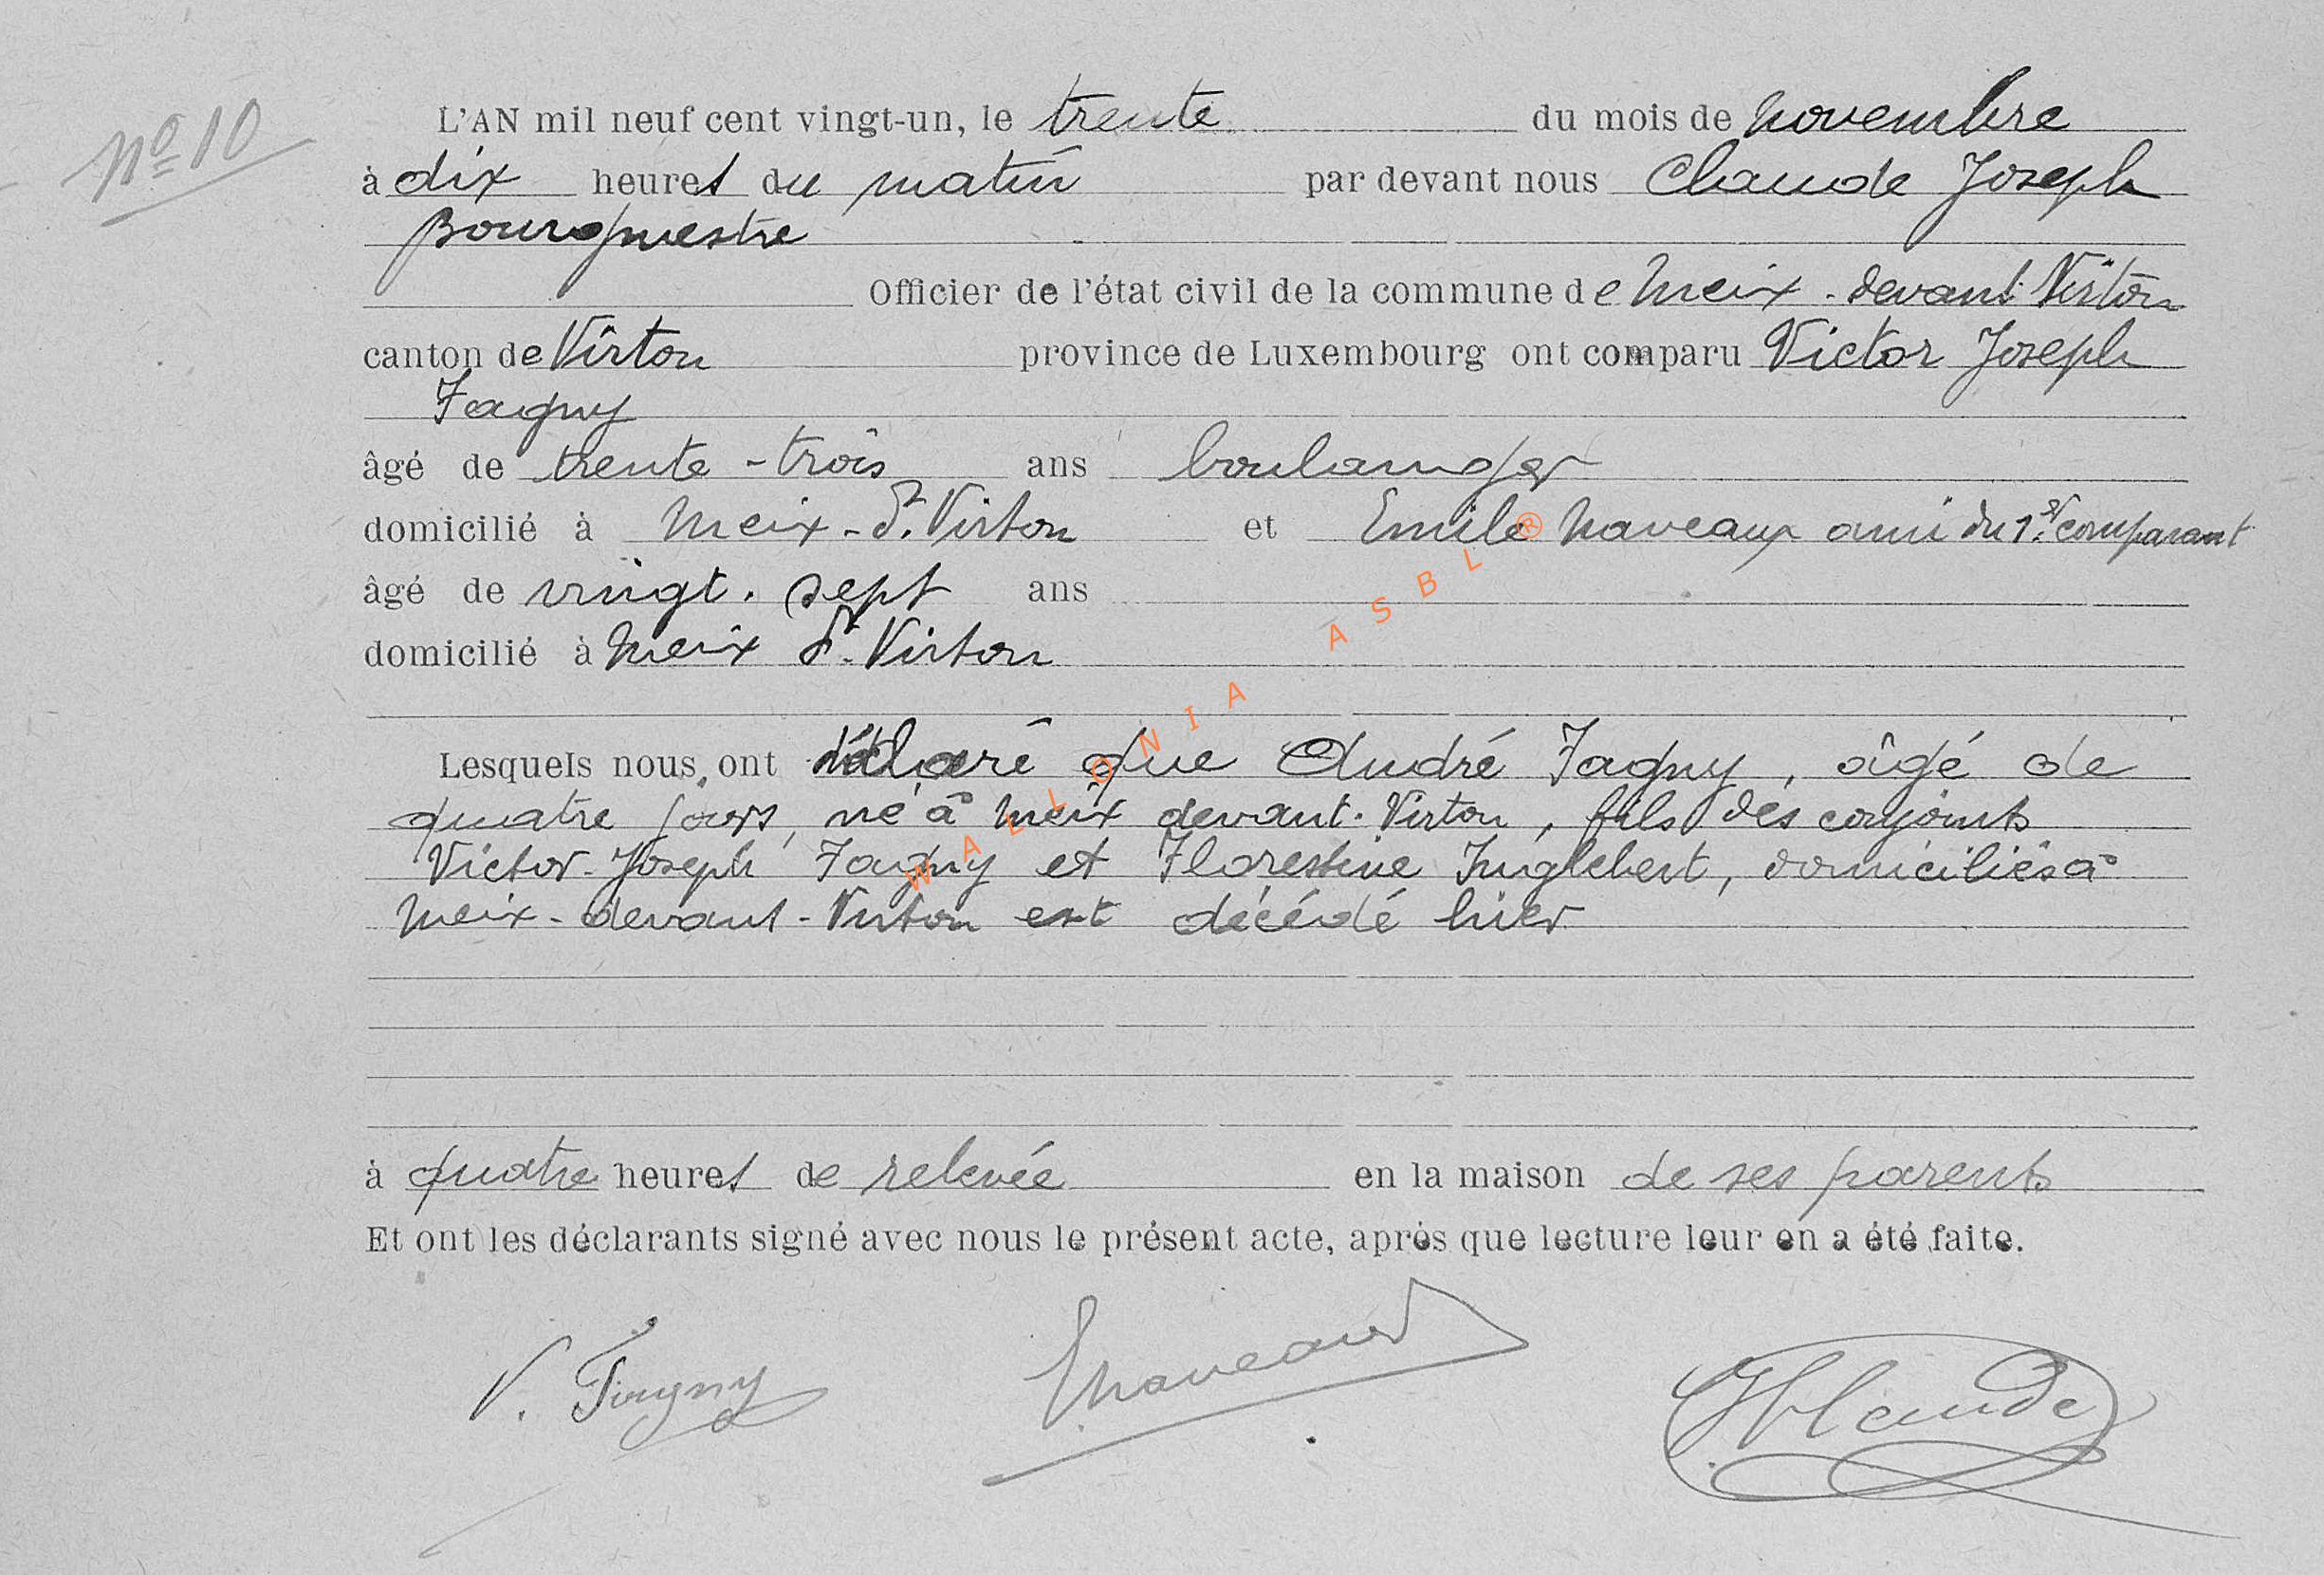 N° 10
L'AN mil neuf cent vingt-un, le trente du mois de novembre
à dix heures du matin par devant nous Claude Joseph
Bourgmestre
Officier de l'état civil de la commune de Meix-devant Virton
canton de Virton province de Luxembourg ont comparu Victor Joseph
Fagny
âgé de trente-trois ans boulanger
domicilié à Meix-dt Virton et Emile Naveaux ami du 1er comparant
âgé de vingt-sept ans
domicilié à Meix dt Virton
Lesquels nous ont déclaré que André Fagny, âgé de
quatre jours, né à Meix devant-Virton, fils des conjoints
Victor-Joseph Fagny et Florestine Inglebert, domiciliés à
Meix-devant-Virton est décédé hier
à quatre heures de relevée en la maison de ses parents
Et ont les déclarants signé avec nous le présent acte, après que lecture leur en a été faite.
V. Fagny ENaveaux JClaude
WALLONIA ASBL ®